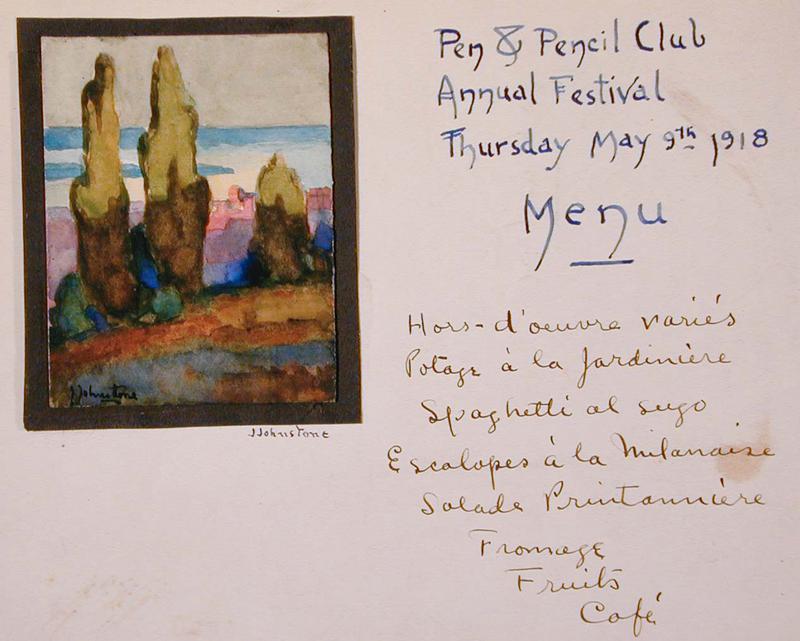 Pen & Pencil Club
Annual Festival
Thursday May 9th 1918
Menu
Hors-d'oeuvre variés
Potage à la Jardinière
Spaghetti al sugo
Escalopes à la Milanaise
Salade Printannière
Fromage
Fruits
Café
J Johnstone
JJohnstone